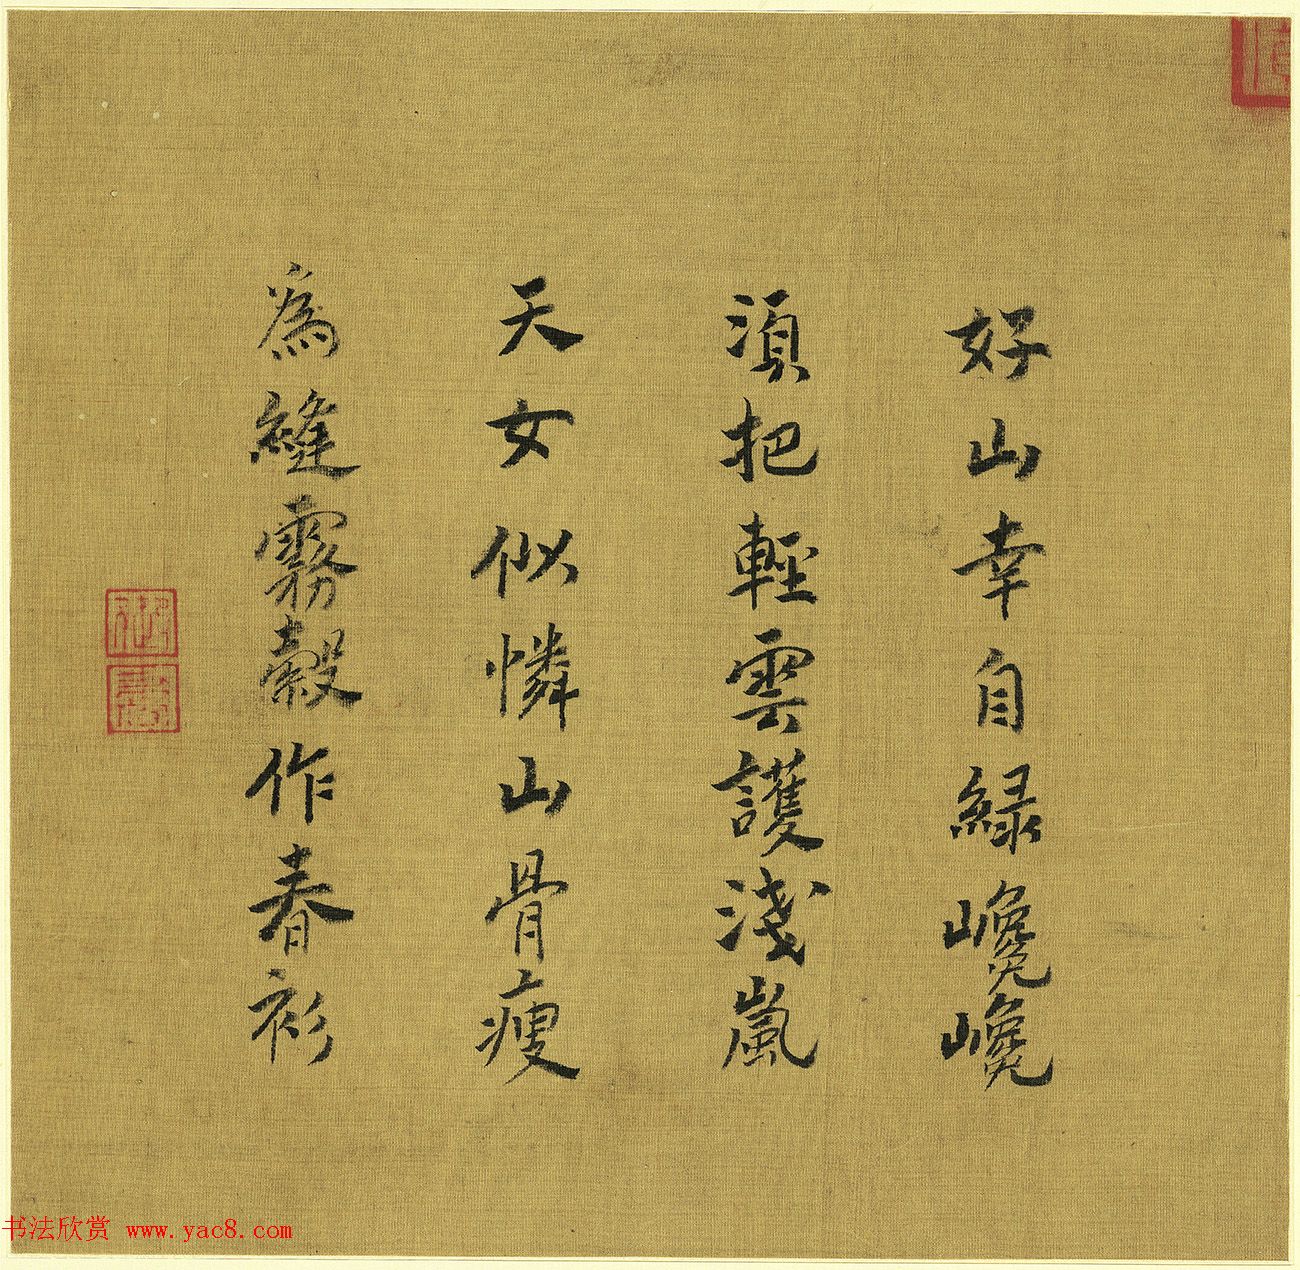 好山幸自緑巉巉
須把輕雲護淺嵐
天女似憐山骨瘦
為縫霧縠作春衫
书法欣赏 www.yac8.com